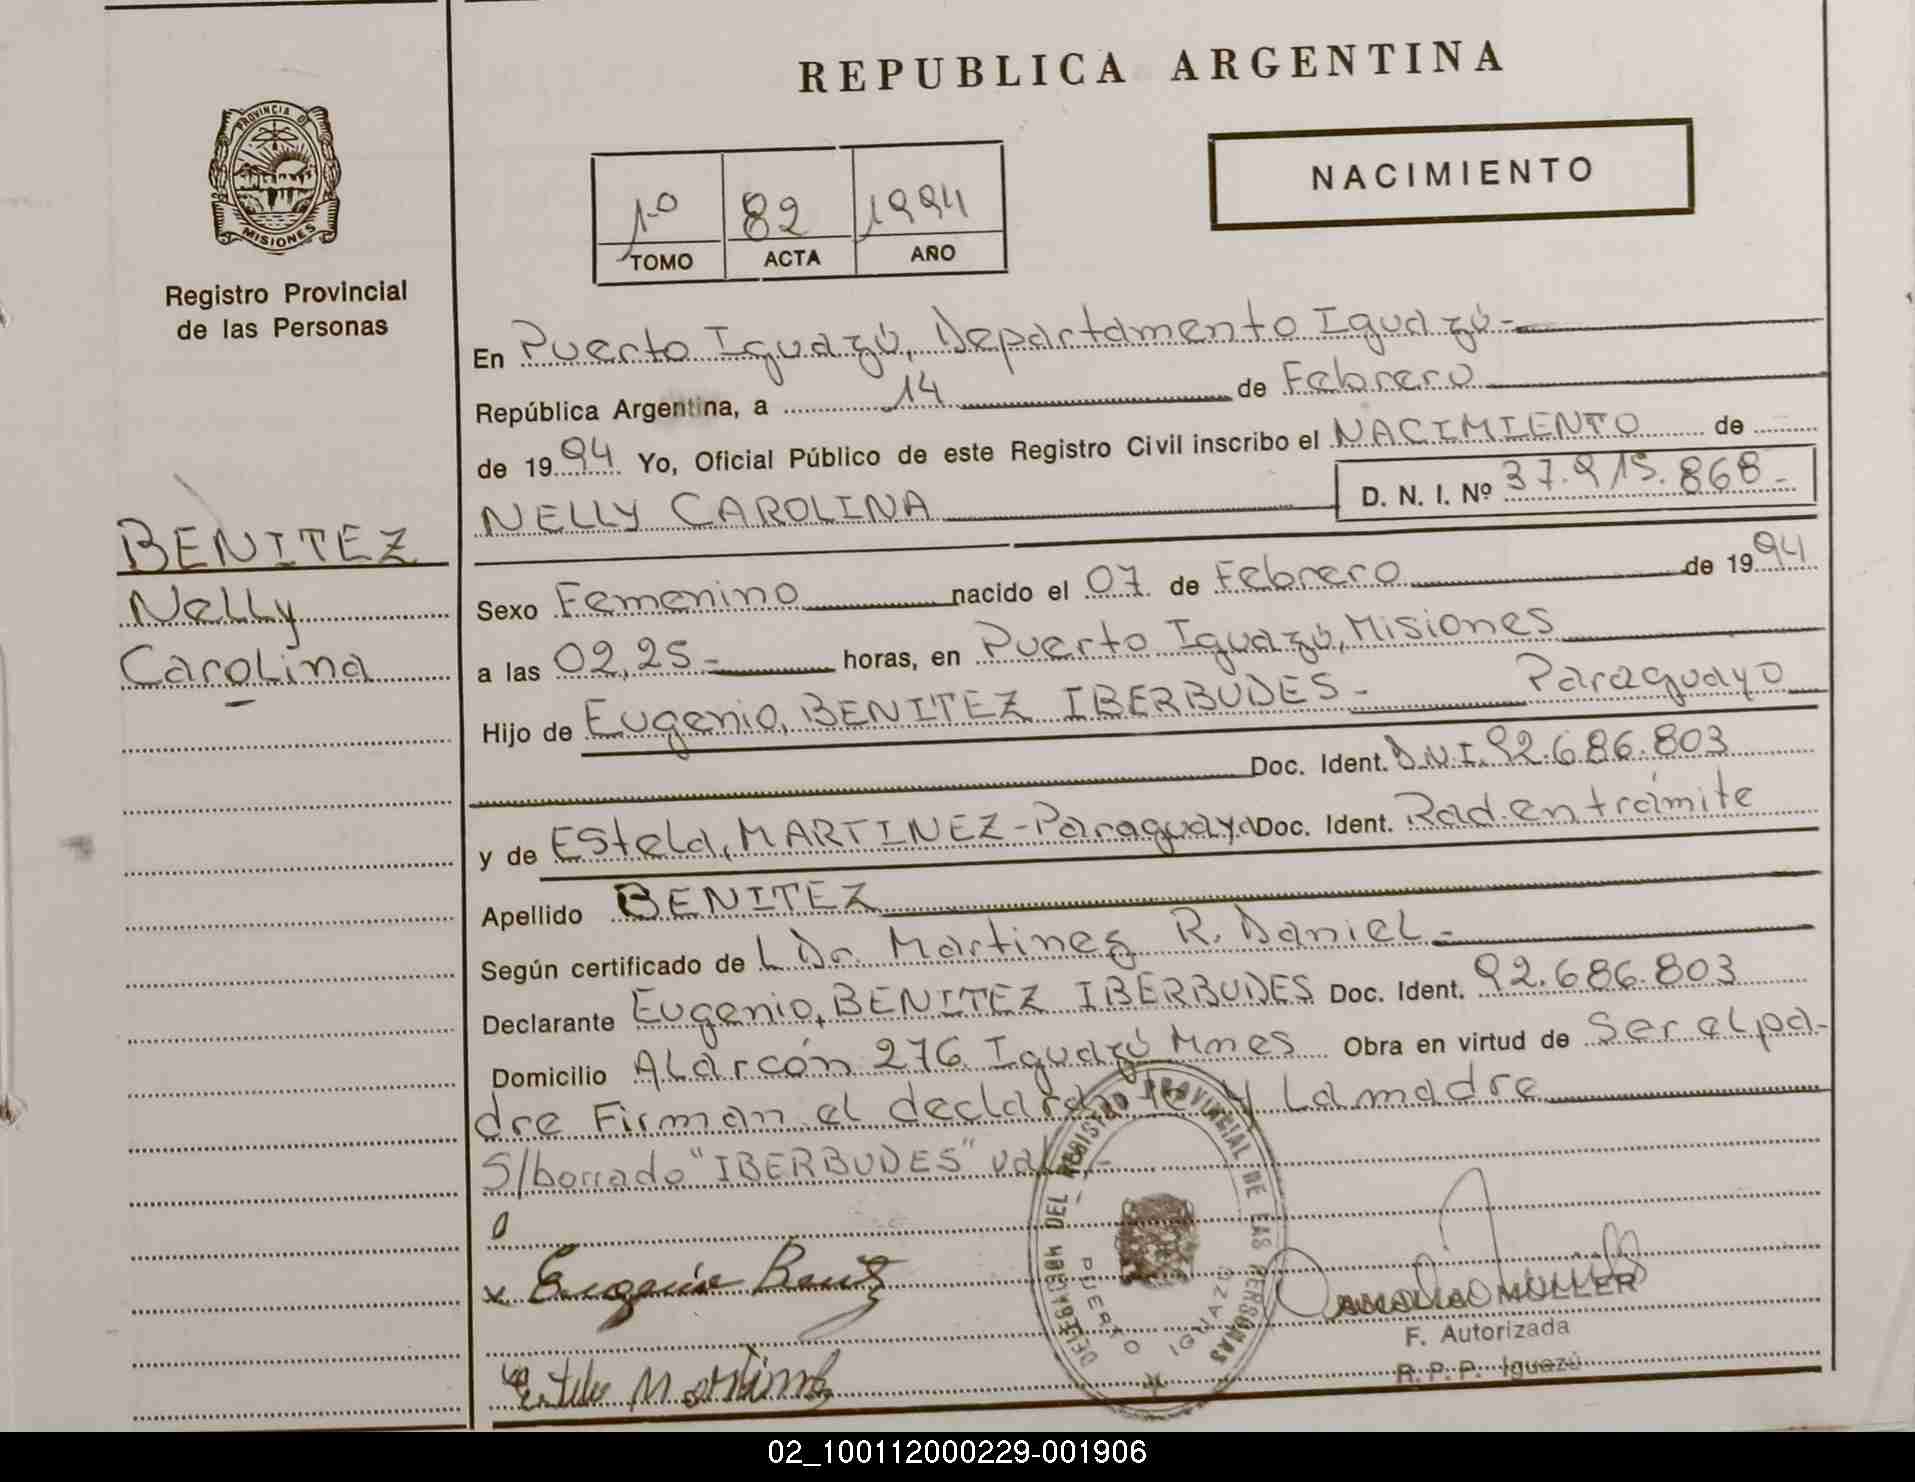 REPUBLICA ARGENTINA
PROVINCIA D
MISIONES
Registro Provincial
de las Personas
NACIMIENTO
1º 82 1994
TOMO ACTA AÑO
En Puerto Iguazú, Departamento Iguazú-
República Argentina, a 14 de Febrero
de 1994 Yo, Oficial Público de este Registro Civil inscribo el NACIMIENTO de
NELLY CAROLINA D. N. I. Nº 37.915.868-
BENITEZ
Nelly
Carolina
Sexo Femenino nacido el 07 de Febrero de 1994
a las 02,25- horas, en Puerto Iguazú, Misiones
Hijo de Eugenio, BENITEZ IBERBUDES- Paraguayo
Doc. Ident. D.N.I. 92.686.803
y de Estela, MARTINEZ-Paraguaya Doc. Ident. Rad.en trámite
Apellido BENITEZ
Según certificado de L Dr. Martinez R. Daniel-
Declarante Eugenio, BENITEZ IBERBUDES Doc. Ident. 92.686.803
Domicilio Alarcón 276 Iguazú Mnes Obra en virtud de Ser el pa-
dre Firman el declarante y La madre
S/borrado "IBERBUDES" vale-
Eugenio Benitez
Estela Martinez
DELEGACION DEL REGISTRO PROVINCIAL DE LAS PERSONAS
PUERTO IGUAZU
MULLER
F. Autorizada
R.P.P. Iguazú
02_100112000229-001906